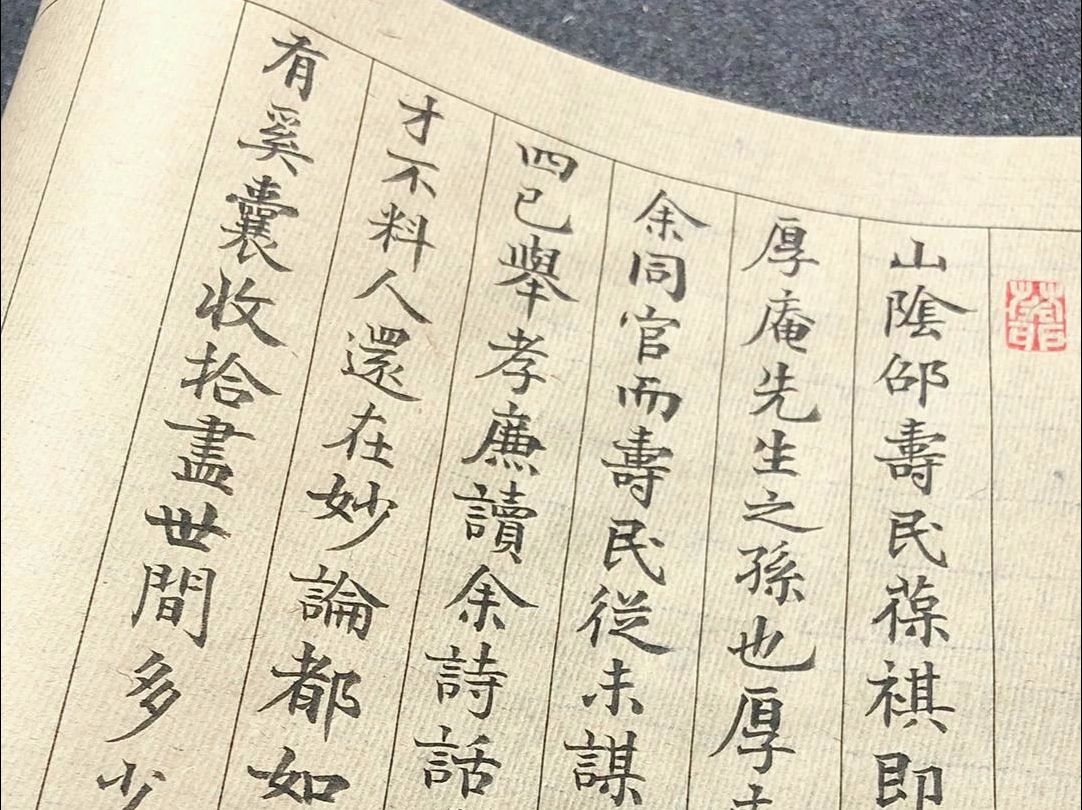 山陰邵壽民葆祺即
厚庵先生之孫也厚
余同官而壽民從未謀
四已舉孝廉讀余詩話
才不料人還在妙論都如
有奚囊收拾盡世間多少